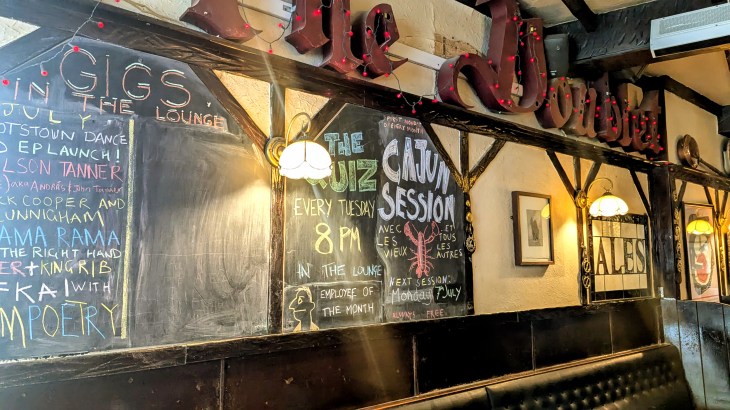 The Doublet
GIGS
IN THE LOUNGE
JULY
OTSTOWN DANCE
D EP LAUNCH!
LSON TANNER
CK COOPER AND
CUNNINGHAM
AMA RAMA
THE RIGHT HAND
ER + KING RIB
FKA WITH
M POETRY
THE
QUIZ
EVERY TUESDAY
8PM
IN THE LOUNGE
EMPLOYEE OF
THE MONTH
OF EVERY MONTH
CAJUN
SESSION
AVEC
LES VIEUX
ET
TOUS
LES
AUTRES
NEXT SESSION
Monday 7th JULY
ALWAYS FREE
ALES